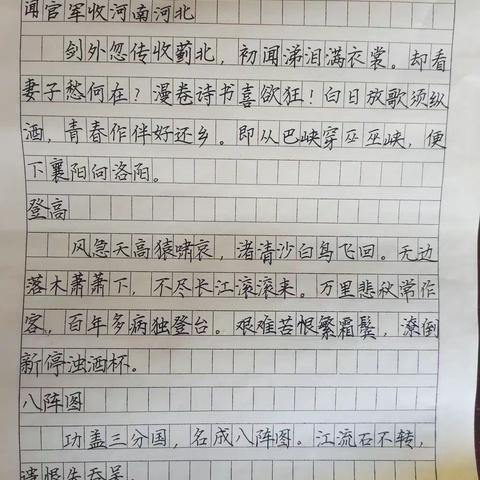 闻官军收河南河北
剑外忽传收蓟北，初闻涕泪满衣裳。却看
妻子愁何在？漫卷诗书喜欲狂！白日放歌须纵
酒，青春作伴好还乡。即从巴峡穿巫巫峡，便
下襄阳向洛阳。
登高
风急天高猿啸哀，渚清沙白鸟飞回。无边
落木萧萧下，不尽长江滚滚来。万里悲秋常作
客，百年多病独登台。艰难苦恨繁霜鬓，潦倒
新停浊酒杯。
八阵图
功盖三分国，名成八阵图。江流石不转，
遗恨失吞吴。